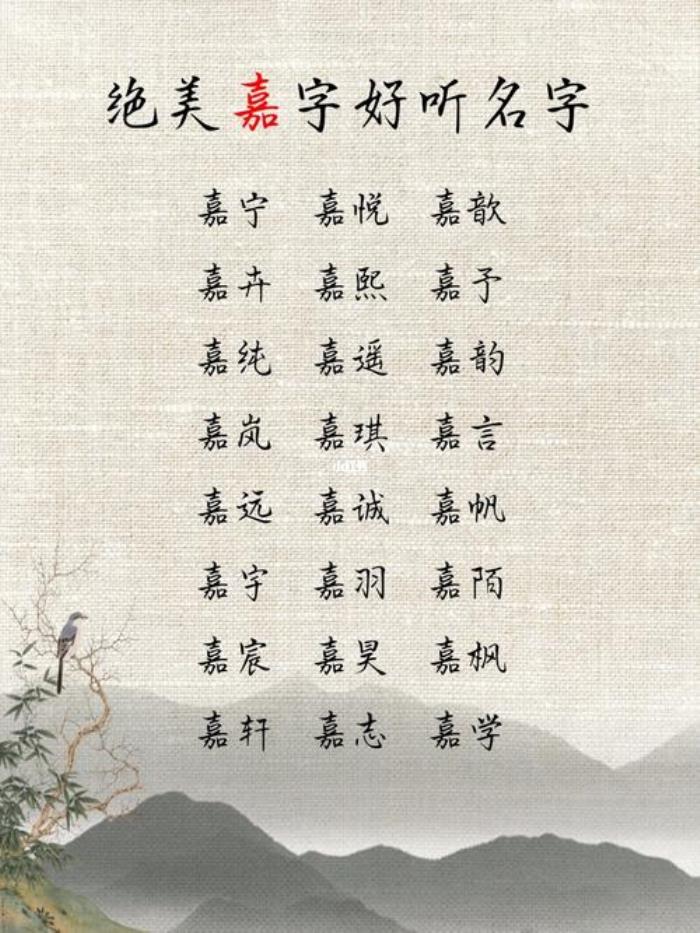 绝美嘉字好听名字
嘉宁 嘉悦 嘉歆
嘉卉 嘉熙 嘉予
嘉纯 嘉遥 嘉韵
嘉岚 嘉琪 嘉言
嘉远 嘉诚 嘉帆
嘉宇 嘉羽 嘉陌
嘉宸 嘉昊 嘉枫
嘉轩 嘉志 嘉学